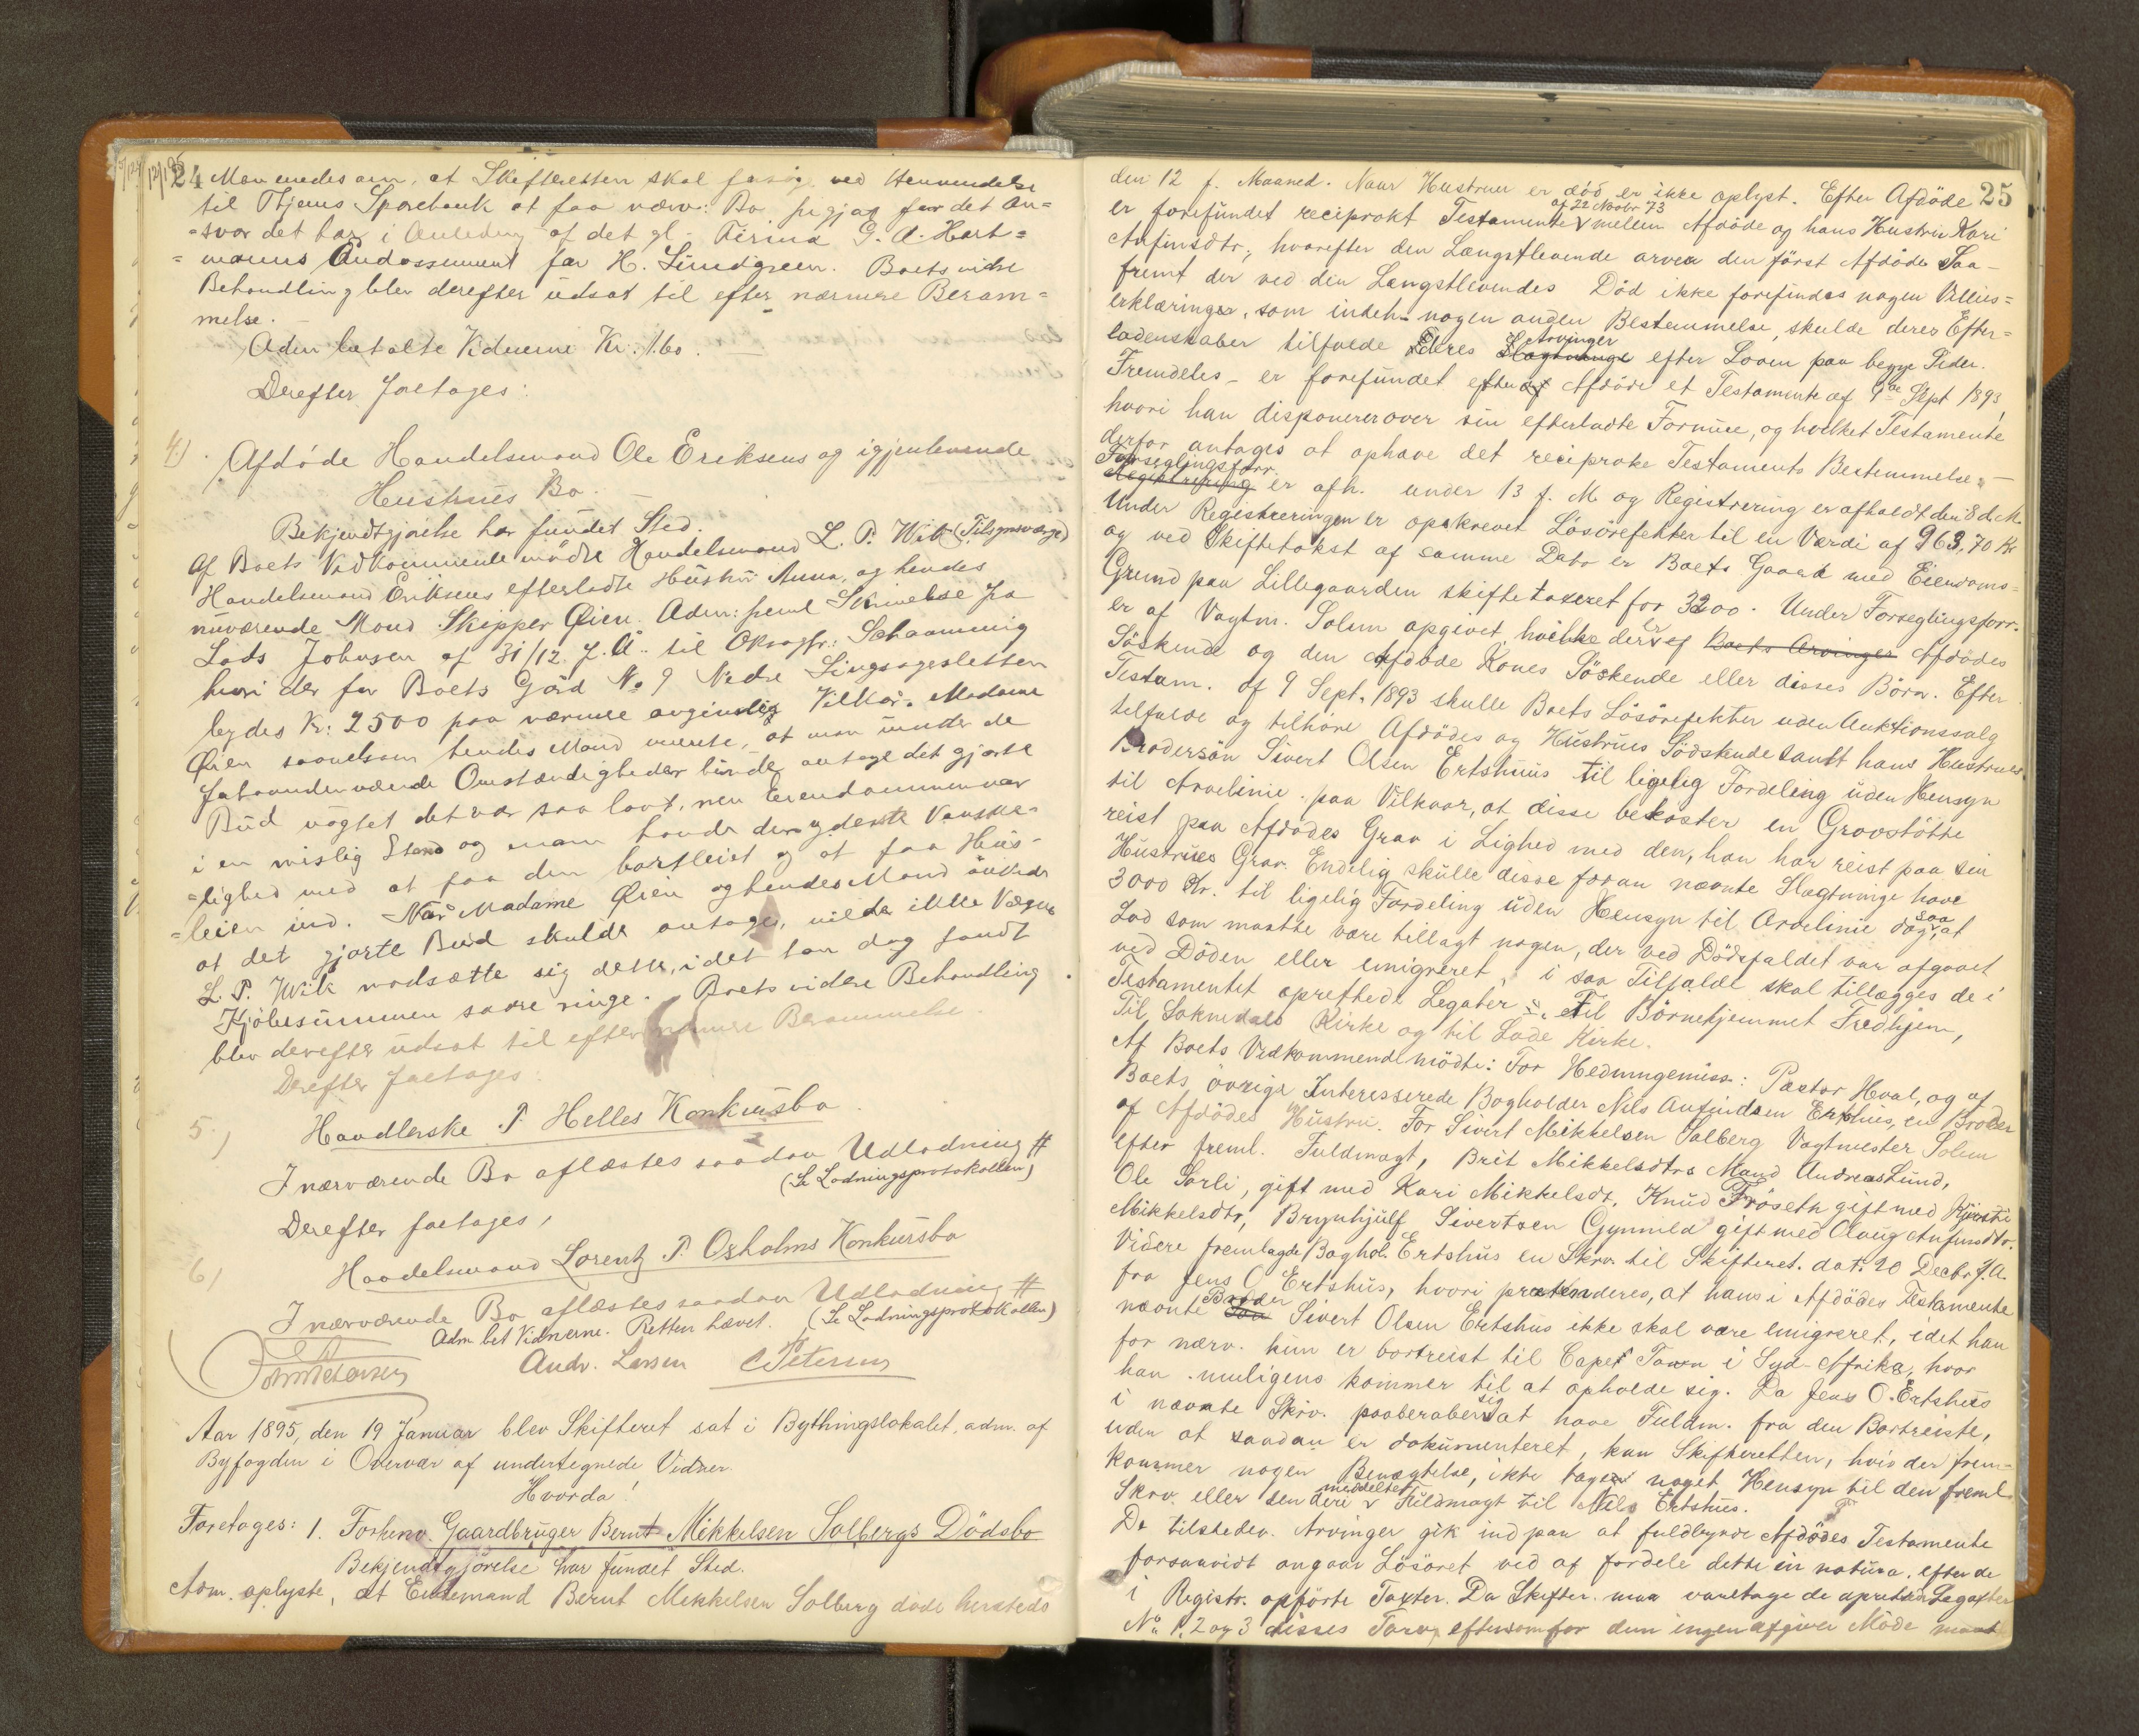 24 Man enedes om, at Skifteretten skal forsøge ved Henvendelse
til Thjems Sparebank at faa nærv: Bo frigjort for det An=
=svar det har i Anledning af det gl. Firma G. A. Hart=
=manns Endossement for H. Lundgreen. Boets vidre
Behandling blev derefter udsat til efter nærmere Beram=
melse.
Adm betalte Vidnerne Kr. 1.60.
Derefter foretages:
4.) Afdøde Handelsmand Ole Eriksens og igjenlevende
Hustrues Bo.
Bekjendtgjørelse har fundet Sted.
Af Boets Vedkommende mødte Handelsmand L. P. Wik (Tilsynsværge)
Handelsmand Eriksens efterladte Hustru Anna, og hendes
nuværende Mand Skipper Øien. Adm: freml Skrivelse fra
Lads Johnsen af 31/12 f. A. til Oksagfr: Schaanning
hvori der for Boets Gård No 9 Nedre Singsagesletten
bydes Kr: 2500 paa nærmere angivelig Vilkår. Madame
Øien saavelsom hendes Mand mente, at man under de
forhaandenværende Omstændigheder burde antage det gjorte
Bud uagtet det var saa lavt, men Eiendommen var
i en mislig Stand og man havde den yderste Vanske-
=lighed med at faa den bortleiet og at faa Hus-
=leien ind. Når Madame Øien og hendes Mand ønskede
at det gjorte Bud skulde antages, vilde ikke Værge
L. P. Wik modsætte sig dette, idet han dog fandt
Kjøbesummen svære ringe. Boets videre Behandling
blev derefter udsat til efter nærmere Berammelse.
Derefter foretages:
5.) Handlerske P. Helles Konkursbo
I nærværende Bo aflæstes saadan Udlodning #
(Se Lodningsprotokollen)
Derefter foretages,
6) Handelsmand Lorentz P. Oxholms Konkursbo
I nærværende Bo aflæstes saadan Udlodning #
Adm bet Vidnerne. Retten hævet. (Se Lodningsprotokollen)
Andr. Larsen C Petersen
Aar 1895, den 19 Januar blev Skifteret sat i Bythingslokalet, adm. af
Byfogden i Overvær af undertegnede Vidner.
Hvorda!
Foretages: 1. Forhenv. Gaardbruger Bernt Mikkelsen Solbergs Dödsbo
Bekjendtgjörelse har fundet Sted.
Adm. oplyste, at Enkemand Bernt Mikkelsen Solberg döde hersteds
25
den 12 f. Maaned. Naar Hustruen er död er ikke oplyst. Efter Afdöde
er forefundet reciprokt Testamente af 22 Novbr 73 mellem Afdöde og hans Hustru Kari
Anfinsdtr., hvorefter den Længstlevende arver den först Afdöde. Saa-
fremt der ved den Længstlevendes Död ikke forefindes nogen Villies=
erklæringer, som indeh. nogen anden Bestemmelse, skulde deres Efter=
ladenskaber tilfalde Deres Slægtninge Arvinger efter Loven paa begge Sider.
Fremdeles er forefundet efter af Afdöde et Testamente af 9de Sept 1893,
hvori han disponerer over sin efterladte Formue, og hvilket Testamente
derfor antages at ophæve det reciproke Testaments Bestemmelser. —
Registrering Forseglingsforr. er afh. under 13 f. M. og Registrering er afholdt den 8 d. M.
Under Registreringen er opskrevet Lösörefekter til en Værdi af 963,70 Kr
og ved Skiftetakst af samme Dato er Boets Gaard med Eiendoms=
Grund paa Lillegaarden skiftetaxeret for 3200. Under Forseglingsforr.
er af Vagtm. Solem opgivet, hvilke der er af Boets Arvinger Afdödes
Söskende og den Afdöde Kones Söskende eller disses Börn. Efter
Testam. af 9 Sept. 1893 skulle Boets Lösörefekter uden Auktionssalg
tilfalde og tilhöre Afdödes og Hustrues Södskende samt hans Hustrues
Brodersön Sivert Olsen Ertshuus til ligelig Fordeling uden Hensyn
til Arvelinie paa Vilkaar, at disse bekoster en Gravstötte
reist paa Afdödes Grav i Lighed med den, han har reist paa sin
Hustrues Grav. Endelig skulle disse foran nævnte Slægtninge have
3000 Kr. til ligelig Fordeling uden Hensyn til Arvelinie dog saa, at
Lod som maatte være tillagt nogen, der ved Dödsfaldet var afgaaet
ved Döden eller emigreret, i saa Tilfælde skal tillægges de i
Testamentet oprettede Legater: Til Börnehjemmet Fredhjem,
Til Soknedals Kirke og til Lade Kirke.
Af Boets Vedkommende mödte: For Hedningemiss.: Pastor Hval, og af
Boets övrige Interesserede Bogholder Nils Anfindsen Ertshus, en Broder
af Afdödes Hustru. For Sivert Mikkelsen Solberg Vagtmester Solem
efter freml. Fuldmagt, Brit Mikkelsdtrs Mand Andreas Lund,
Ole Sorli, gift med Kari Mikkelsdt, Knud Fröseth gift med Kjersti
Mikkelsdtr, Brynhjulf Sivertsen Gynnild gift med Olaug Anfinsdtr.
Videre fremlagde Boghol. Ertshus en Skriv. til Skifteret. dat. 20 Decbr f. A.
fra Jens O Ertshus, hvori prætenderes, at hans i Afdödes Testamente
nævnte Sön Broder Sivert Olsen Ertshus ikke skal være emigreret, idet han
for nærv. kun er bortreist til Capet Town i Syd-Afrika, hvor
han muligens kommer til at opholde sig. Da Jens O. Ertshus
i nævnte Skriv. paaberaaber sig at have Fuldm. fra den Bortreiste,
uden at saadan er dokumenteret, kan Skifteretten, hvis der frem-
kommer nogen Benægtelse, ikke tage noget Hensyn til den freml.
Skriv. eller den deri meddelte Fuldmagt til Nils Ertshus.
De tilstedev. Arvinger gik ind paa at fuldbyrde Afdödes Testamente
forsaavidt angaar Lösöret ved at fordele dette in natura, efter de
i Registr. opförte Taxter. Da Skifter. maa varetage de oprettede Legater
No 1, 2 og 3 disses Tarv, eftersom for dem ingen afgiver Möde